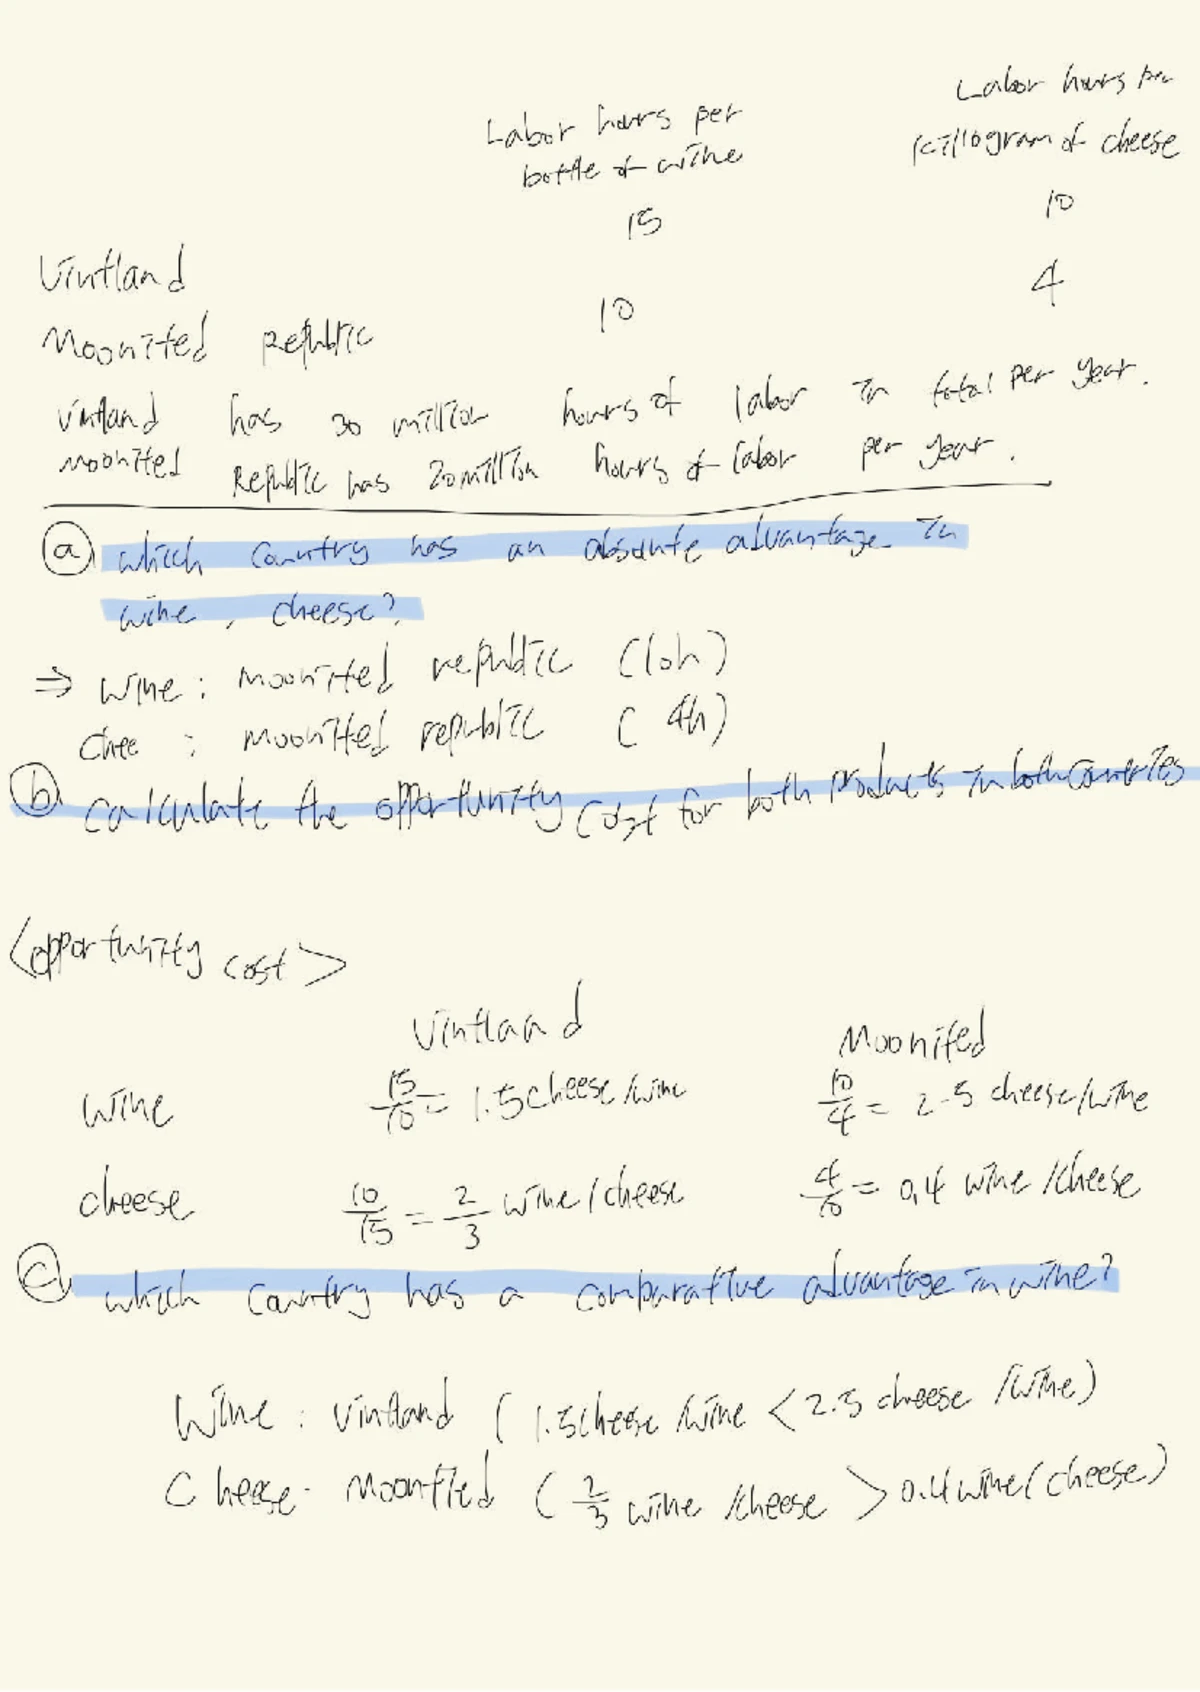 Labor hours per
bottle of wine
Labor hours per
killogram of cheese
15
10
Vintland
10
4
Moonited Republic
Vintland has 30 million hours of labor in total per year.
Moonited Republic has 20 million hours of labor per year.
(a) which Country has an absolute advantage in
wine, cheese?
⇒ Wine: Moonited republic (10h)
Chee : Moonited republic (4h)
(b) Calculate the opportunity cost for both products in both Countries
<opportunity cost>
Vintland Moonited
Wine 15/10 = 1.5 cheese/wine 10/4 = 2.5 cheese/wine
cheese 10/15 = 2/3 wine/cheese 4/10 = 0.4 wine/cheese
(c) which Country has a comparative advantage in wine?
Wine: Vintland (1.5 cheese/wine < 2.5 cheese/wine)
Cheese: Moonited (2/3 wine/cheese > 0.4 wine/cheese)